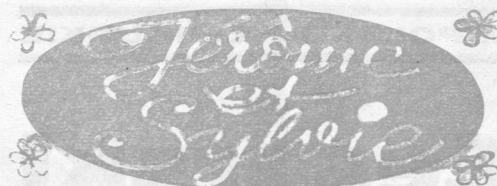 Jérôme
et
Sylvie